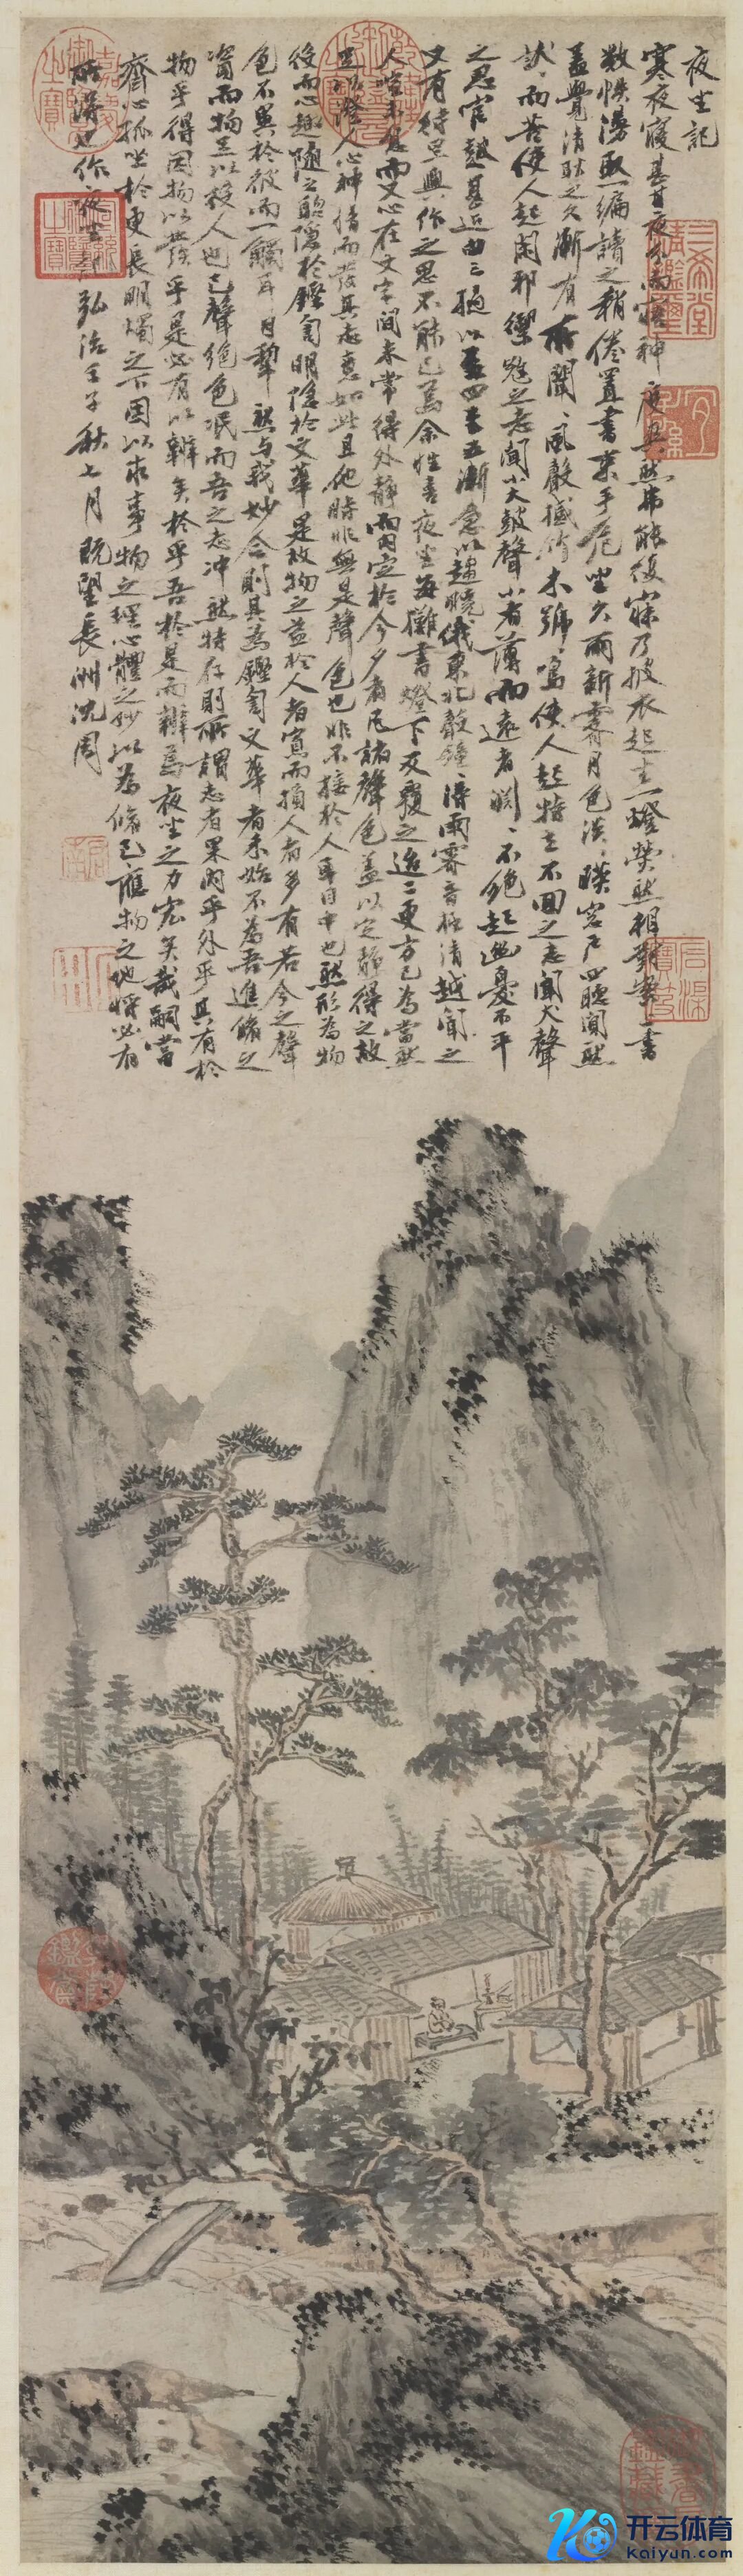 夜坐記
寒夜寢甚甘夜分而寤神度爽然弗能復寐乃披衣起坐一燈熒然相對案上書
數帙漫取一編讀之稍倦置書束手危坐久雨新霽月色淡〻映窓戶四聽闃然
蓋覺清耿之久漸有所聞〻風聲撼竹木號〻鳴使人起特立不回之志聞犬聲
狀〻而苦使人起閑邪禦寇之志聞小大鼓聲小者薄而遠者淵〻不絕起幽憂不平
之思官鼓甚近由三撾以至四至五漸急以趨曉俄東北聲鐘〻得雨霽音極清越聞之
又有待旦興作之思不能已焉余性喜夜坐每攤書燈下反覆之迨二更方已為當然
人喧未息而又心在文字間未常得外靜而內定於今夕者凡諸聲色蓋以定靜得之故
足以澄人心神情而發其志意如此且他時非無是聲色也非不接於人耳目中也然形為物
役而心趣隨之聰隱於鏗訇明隱於文華是故物之益於人者寡而損人者多有若今之聲
色不異於彼而一觸耳目犁然與我妙合則其為鏗訇文華者未始不為吾進脩之
資而物足以役人也已聲絕色泯而吾之志沖然特存則所謂志者果內乎外乎其有於
物乎得因物以發乎是必有以辨矣於乎吾於是而辨焉夜坐之力宏矣哉嗣當
齋心孤坐於更長明燭之下因以求事物之理心體之妙以為脩己應物之地將必有
所得也作夜坐記弘治壬子秋七月既望長洲沈周
三希堂精鑒璽
宜子孫
石渠寶笈
嘉慶御覽之寶
乾隆御覽之寶
啟南
乾隆鑒賞
开云体育
kaiyun.com